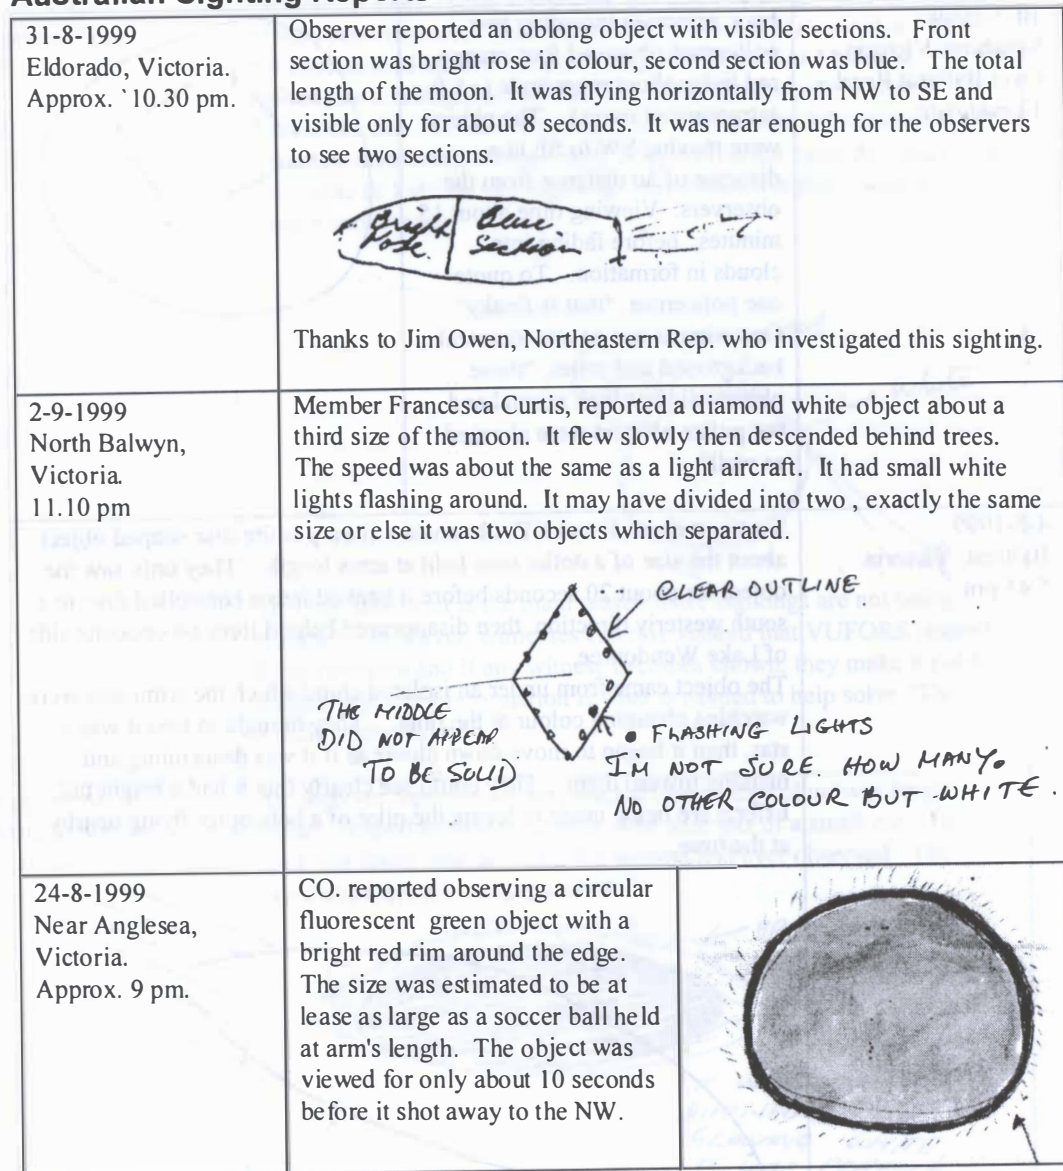 Australian Sighting Reports
31-8-1999
Eldorado, Victoria.
Approx. `10.30 pm.
Observer reported an oblong object with visible sections. Front
section was bright rose in colour, second section was blue. The total
length of the moon. It was flying horizontally from NW to SE and
visible only for about 8 seconds. It was near enough for the observers
to see two sections.
Bright Blue
Rose Section
Thanks to Jim Owen, Northeastern Rep. who investigated this sighting.
2-9-1999
North Balwyn,
Victoria.
11.10 pm
Member Francesca Curtis, reported a diamond white object about a
third size of the moon. It flew slowly then descended behind trees.
The speed was about the same as a light aircraft. It had small white
lights flashing around. It may have divided into two, exactly the same
size or else it was two objects which separated.
CLEAR OUTLINE.
THE MIDDLE
DID NOT APPEAR
TO BE SOLID
FLASHING LIGHTS
I'M NOT SURE HOW MANY.
NO OTHER COLOUR BUT WHITE.
24-8-1999
Near Anglesea,
Victoria.
Approx. 9 pm.
CO. reported observing a circular
fluorescent green object with a
bright red rim around the edge.
The size was estimated to be at
lease as large as a soccer ball held
at arm's length. The object was
viewed for only about 10 seconds
before it shot away to the NW.